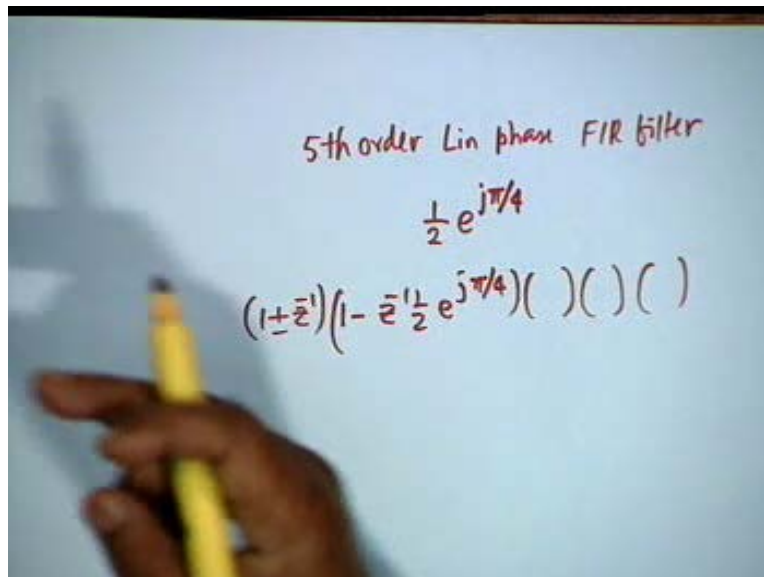 5th order Lin phase FIR filter
1/2 e^{jπ/4}
(1 ± z̄¹)(1 - z̄¹ 1/2 e^{jπ/4})( )( )( )